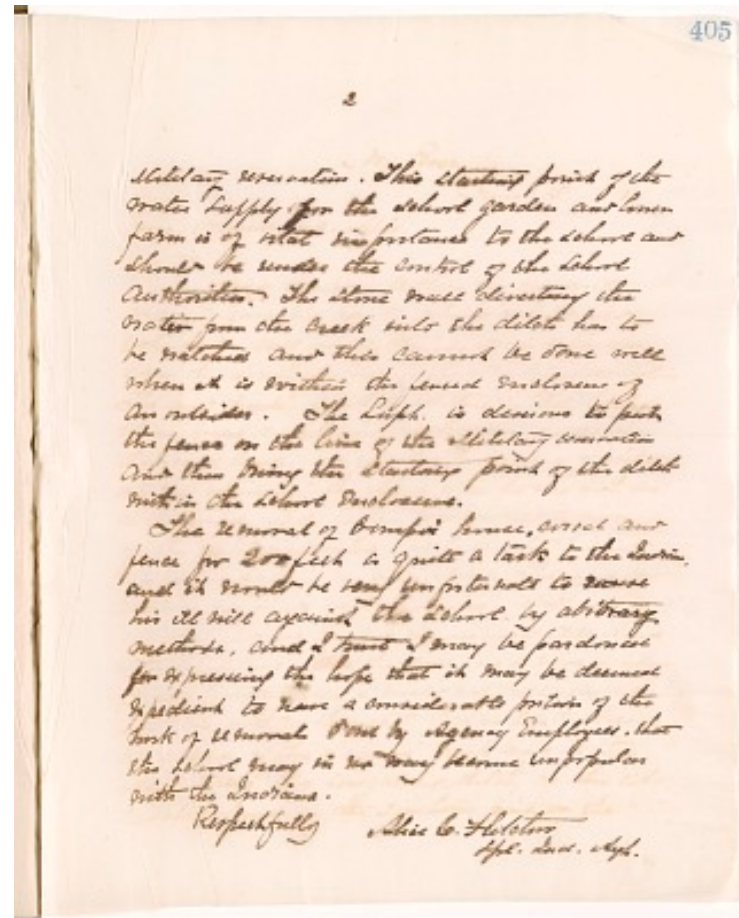 405
2
Military reservation. This starting point of the
water supply for the school garden and
farm is of vital importance to the school and
should be under the control of the school
authorities. The stone wall directing the
water from the creek into the ditch has to
be watched and this cannot be done well
when it is within the fenced enclosure of
an outsider. The Supt. is desirous to put
the fence on the line of the Military reservation
and thus bring the starting point of the ditch
within the school enclosure.
The removal of house, corral and
fence for 200 feet is quite a task to the Indian,
and it would be very unfortunate to
his ill will against the school by abitrary
methods, and I trust I may be pardoned
for expressing the hope that it may be deemed
expedient to have a considerable portion of the
work of removal done by Agency Employees, that
the school may in no way become unpopular
with the Indians.
Respectfully Alice C. Fletcher
Spl. Ind. Agt.